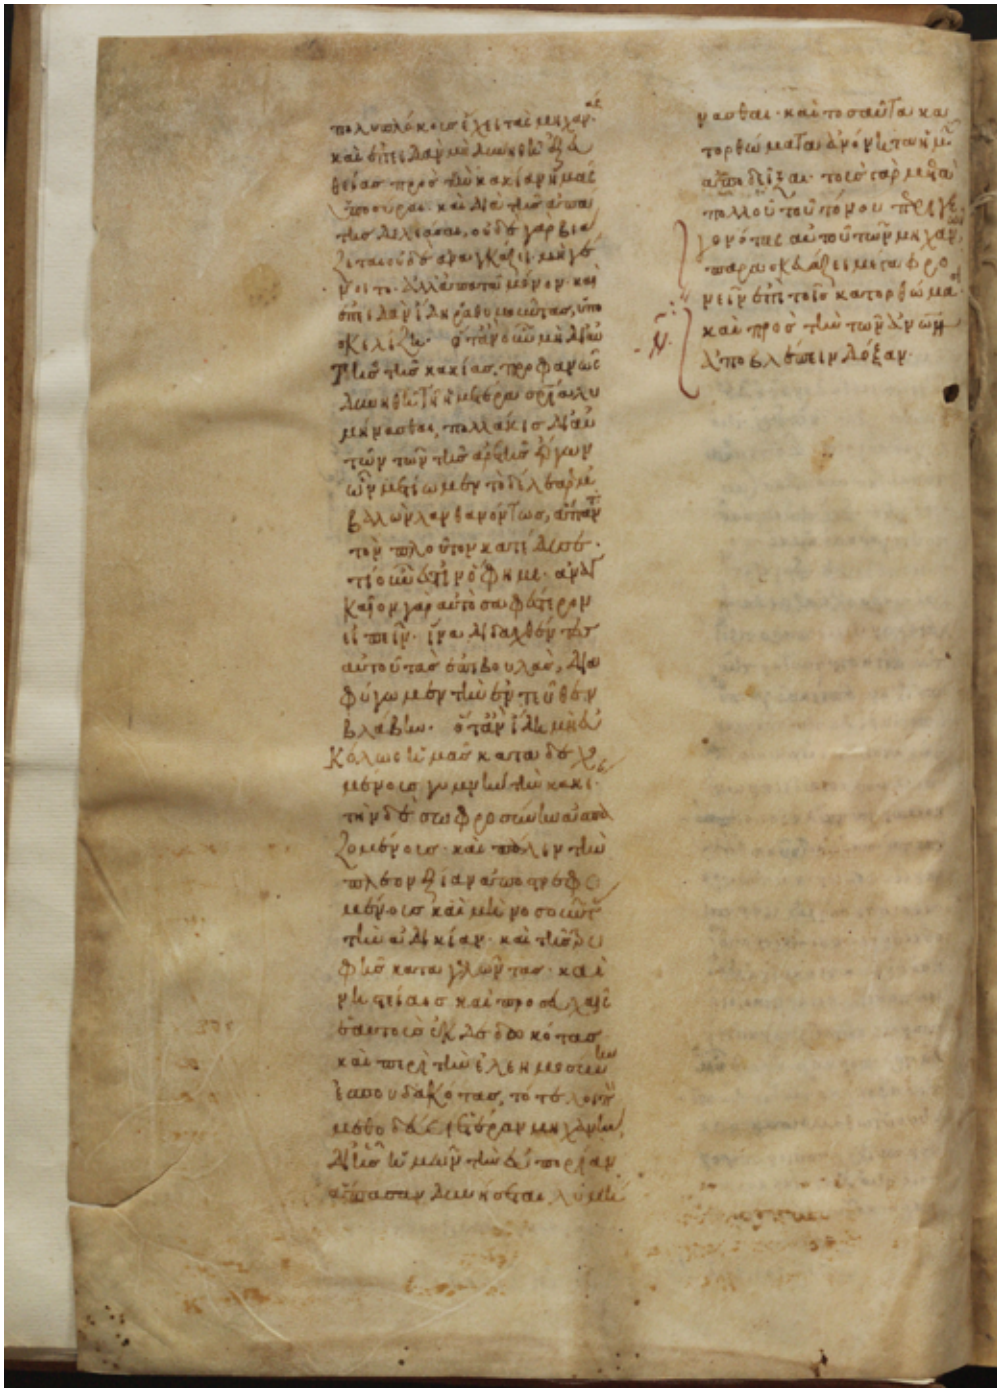 πολυπλόκους ἔχει τὰς μηχανάς·
καὶ ἐπειδὰν μὴ δυνηθῆ ἐξ εὐ
θείας πρὸς τὴν κακίαν ἡμᾶς
καὶ διὰ τῆς
οὐδὲ γὰρ βιά
ζεται οὐδὲ ἀναγκάζει· μὴ γέ
νοιτο· ἀλλὰ ἀπατᾶ μόνον· καὶ
ἐπειδὰν ἴδη ῥαθυμοῦντας, ὑπο
σκελίζει· ὅταν οὖν μὴ διὰ
τῆς κακίας προφανῶς
δυνηθῆ τῆ ἡμετέρα σωτηρία λυ
μήνασθαι, πολλάκις δι' αὐ
τῶν τῶν τῆς ἀρετῆς ἔργων
ὧν μετίωμεν τὸ δέλεαρ
βαλὼν λανθανόντως, ἅπαντα
τὸν πλοῦτον κατέδυσε·
τί οὖν ἐστιν ὅ φημι· ἀναγ
καῖον γὰρ αὐτὸ σαφέστερον
εἰπεῖν· ἵνα διδαχθέντες
αὐτοῦ τὰς ἐπιβουλὰς, δια
φύγωμεν τὴν ἐντεῦθεν
βλάβην· ὅταν ἴδη μὴ εὐ
κόλως ἡμᾶς καταδεχο
μένους γυμνὴν τὴν κακί·
τὴν δὲ σωφροσύνην ἀσπα
ζομένους· καὶ πάλιν τὴν
πλεονεξίαν ἀποστρεφο
μένους καὶ μισοῦντας
τὴν ἀδικίαν· καὶ τῆς τρυ
φῆς καταγελῶντας· καὶ
νηστείαις καὶ προσευχαῖς
ἑαυτοὺς ἐκδεδωκότας
καὶ περὶ τὴν ἐλεημοσύνην
ἐσπουδακότας, τότε λοιπὸν
μεθοδεύει ἑτέραν μηχανὴν,
δι' ἧς ἡμῶν τὴν εὐπορίαν
ἅπασαν δυνήσεται λυμή
νασθαι· καὶ τοσαῦτα κα
τορθώματα ἀνόνητα ἡμῖν
ἀποδεῖξαι· τοὺς γὰρ μετὰ
πολλοῦ τοῦ πόνου περιγε
γονότας αὐτοῦ τῶν μηχανῶν,
παρασκευάζει μέγα φρο
νεῖν ἐπὶ τοῖς κατορθώμασι·
καὶ πρὸς τὴν τῶν ἀνων
ἀποβλέπειν δόξαν·